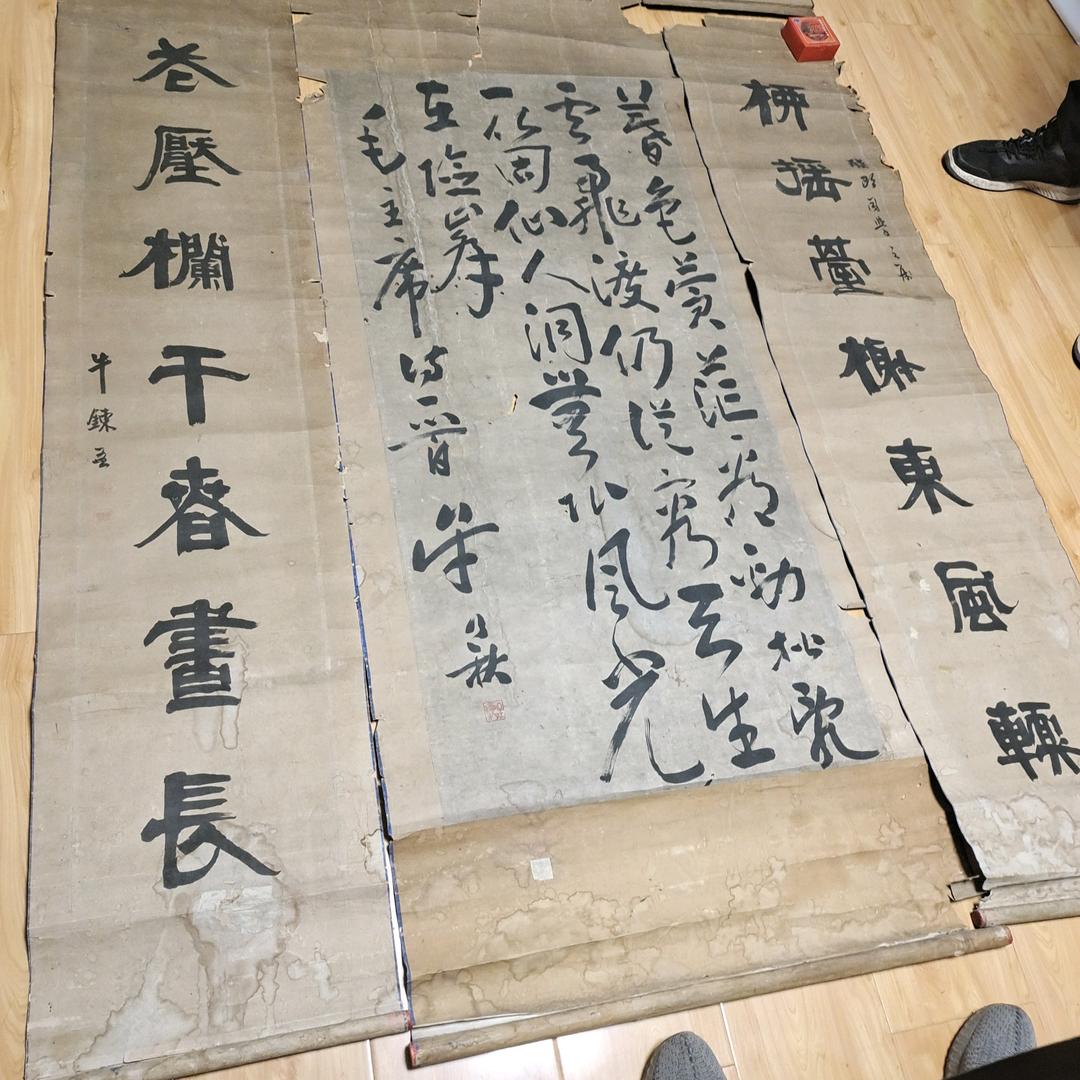 柳搖臺榭東風輭
暮色蒼茫看勁松亂
雲飛渡仍從容天生
一個仙人洞無限風光
在險峰
毛主席詩一首
花壓欄干春晝長
牛鍊